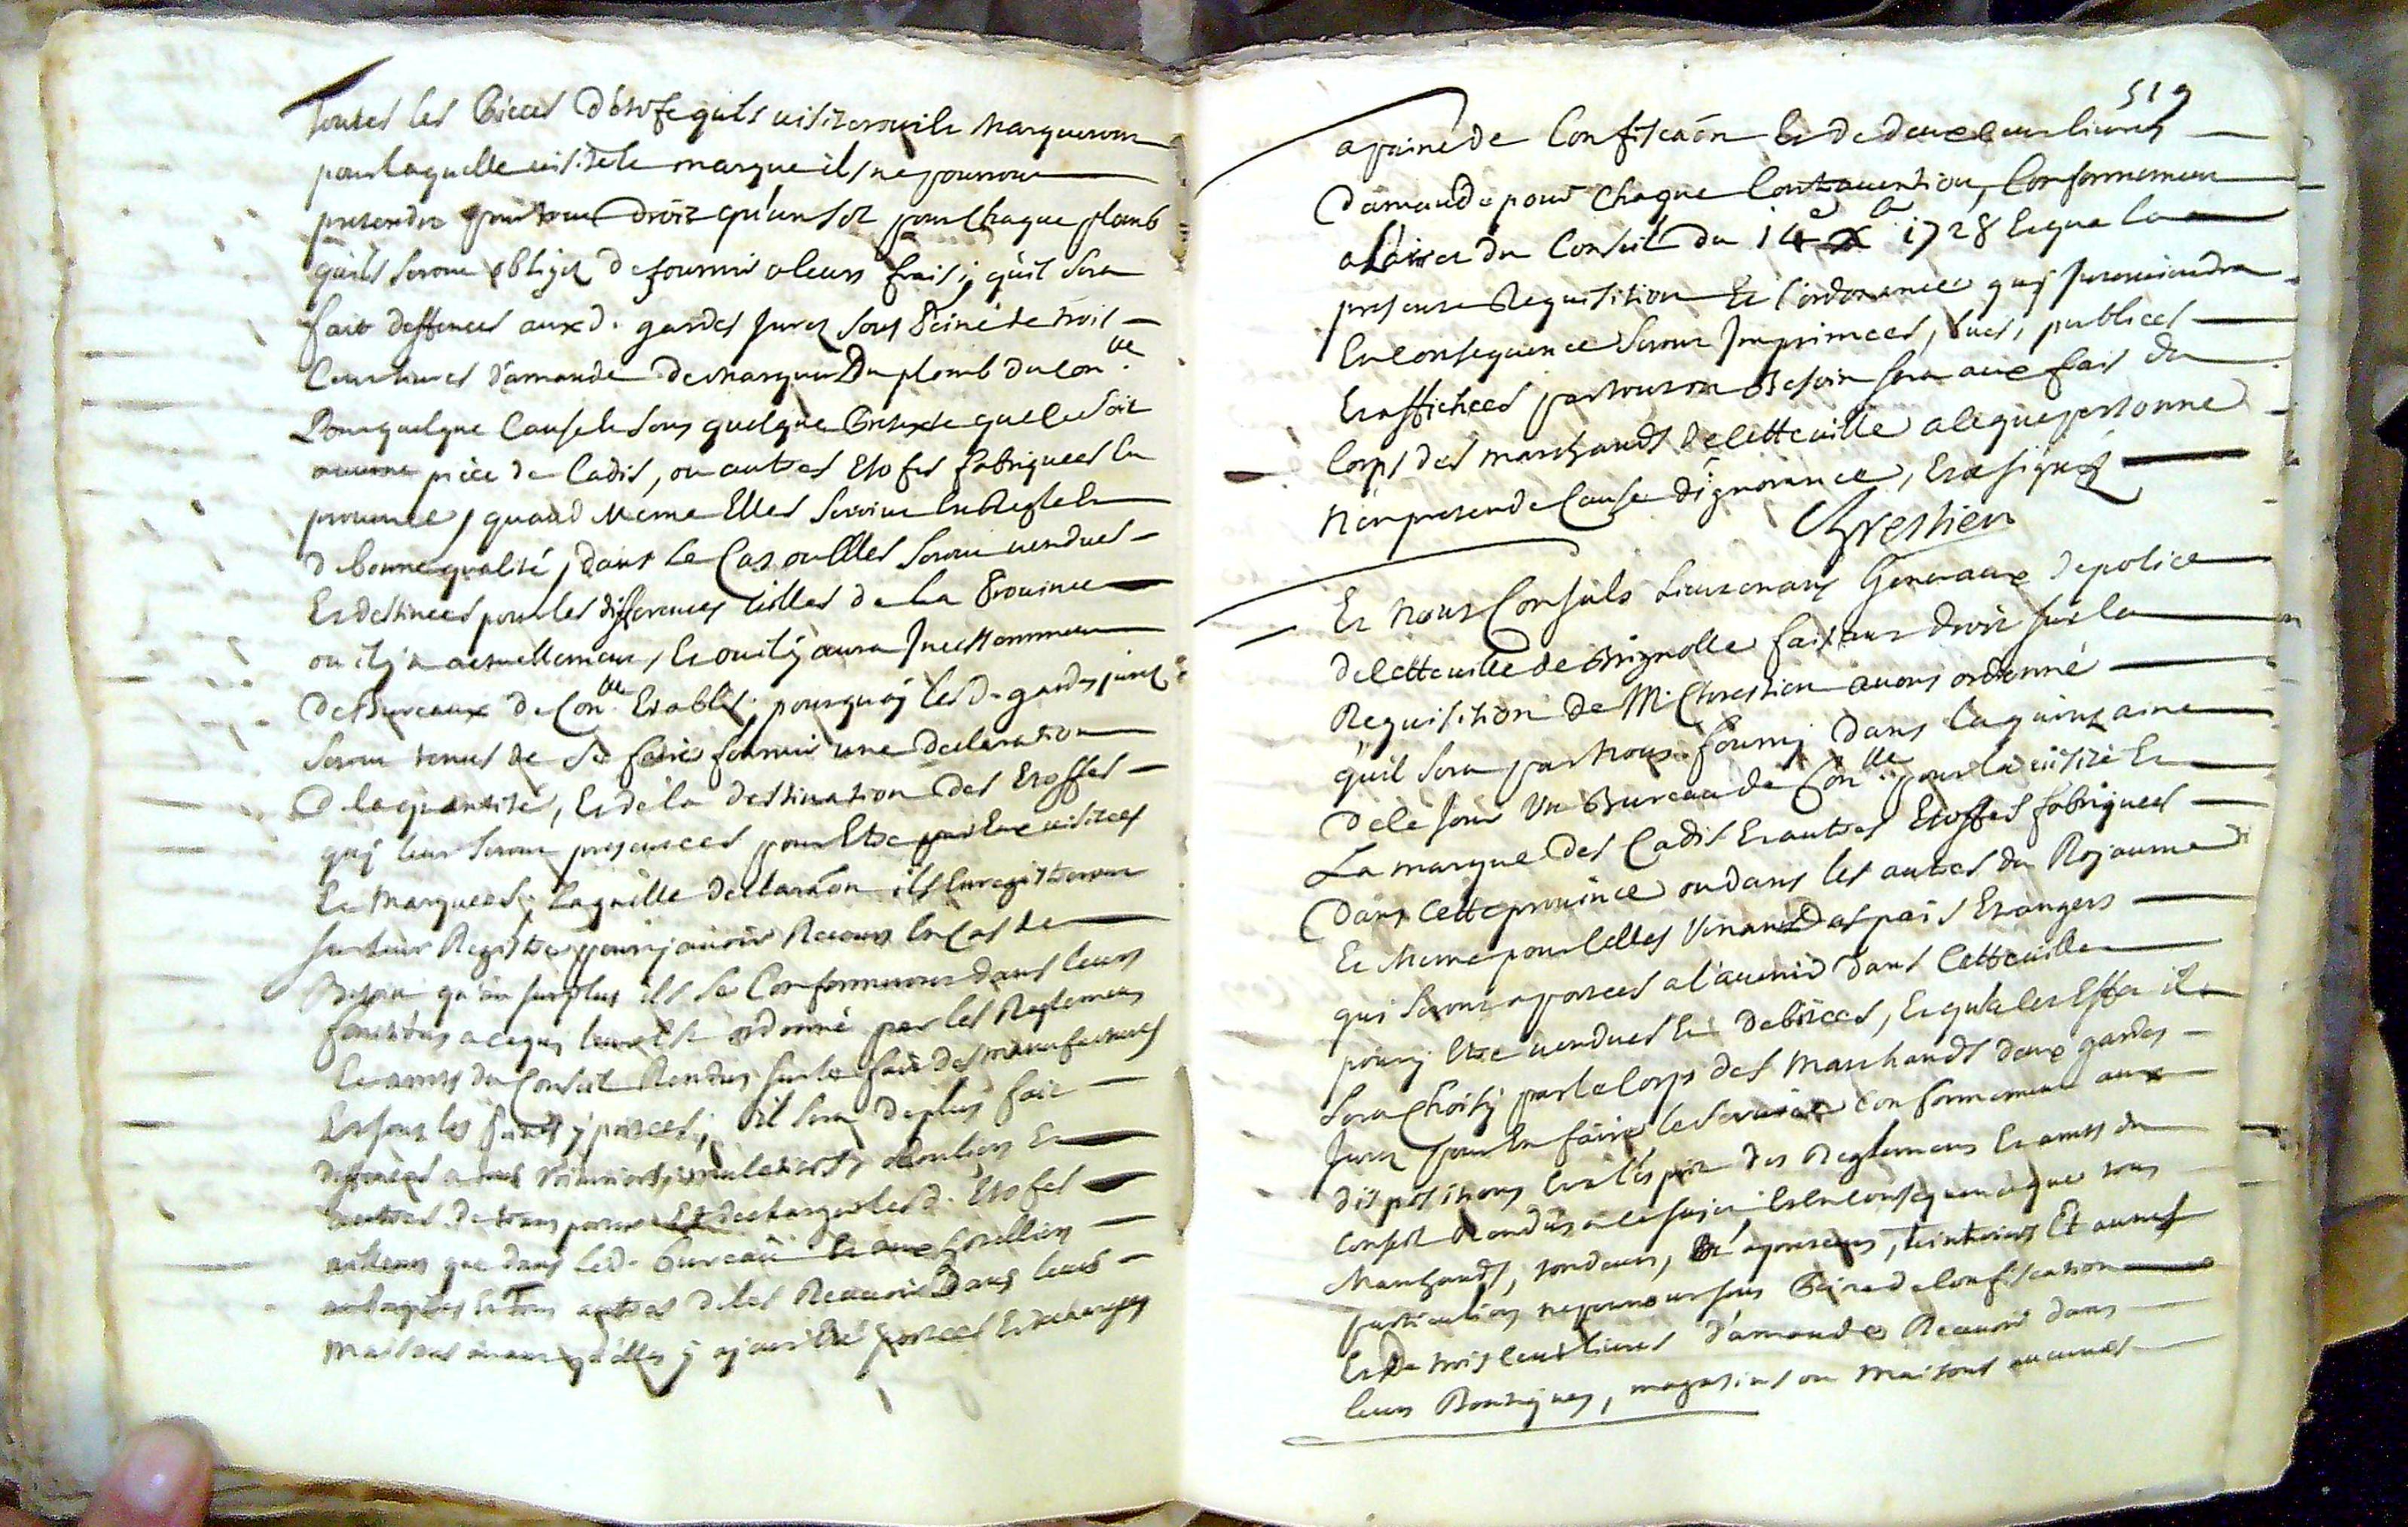 Toutes les Pieces d'étofe quils visiteront et marqueront
pour laquelle visite et marque ils ne pourront
pretendre pour tout droit qu'un sol pour Chaque plomb
quils seront obligez de fournir a leurs frais; quil sera
fait deffences aux d. gardes Jurez sous Peine de trois
Cens livres d'amande de marquer Du plomb du Con.lle
Pour quelque Cause et sous quelque Pretexte que ce soit
aucune pièce de Cadis, ou autres Etofes fabriquees En
province, quand Meme Elles seroint En Regle Et
de bonne qualité, dans le Cas ou Elles seront vendues
Et destinees pour les differentes villes de La Province
ou il y a actuellement, Et ou il y aura Incessamment
des Bureaux de Con.lle Etablis; pourquoy les d. gardes jurez
seront tenus de se faire fournir une declaration
de la quantité, Et de la destination des Etoffes
quy leur seront presentees pour Etre par Eux visitees
Et Marquees, Laquelle declaraôn ils Enregistreront
sur leur Registre pour y avoir Recours En Cas de
Besoin qu'au surplus ils se Conformeront dans leurs
fonctions a ce quy leur Est ordonné par les Reglemens
Et arrets du Conseil Rendus sur le fait des manufactures
Et sous les peines y portees; il sera de plus fait
deffences a tous voituriers, muletiers, rouliers Et
autres de transporter Et decharger les d. Etofes
ailleurs que dans led. Bureau Et aux hoteliers
aubergistes Et tous autres de les Recevoir Dans leurs
maisons avant quelles y ayent Eté portees Et dechargees
519
a peine de Confiscaôn Et de deux cens livres
d'amande pour Chaque Contravention, Conformement
a L'arret du Conseil du 14e Xbre 1728 Et que la
presente Requisition Et l'ordonance quy Interviendra
En Consequence seront Imprimees, lues, publiees
Et affichees partout ou Besoin sera aux frais du
Corps des marchands de cette ville a ce que personne
n'en pretende Cause d'ignorance, Et a signé
Chrestien
Et Nous Consuls Lieutenans Generaux de police
de cette ville de Brignolle faisant droit sur la
Requisition de M. Chrestien avons ordonné
quil sera par Nous fourny dans la quinzaine
de ce jour Un Bureau de Con.lle pour la visite Et
La marque des Cadis Et autres Etoffes fabriquees
Dans Cette province ou dans les autres du Royaume
Et Meme pour Celles Venant Des païs Etrangers
qui seront aportees a l'avenir dans Cette ville
pour y Etre vendues Et debitees, Et qu'a cet Effet il
sera Choisy par le Corps des Marchands deux gardes
Jurez pour En faire le service Conformement aux
dispositions Et a l'esprit des Reglemens Et arrets du
Conseil Rendus a ce sujet Et En Consequence que tous
Marchands, tondeurs, apreteurs, teinturiers Et autres
particuliers ne pourront sous Peine de Confiscation
Et De trois cens livres d'amande Recevoir dans
leurs Boutiques, magasins ou maisons aucunes